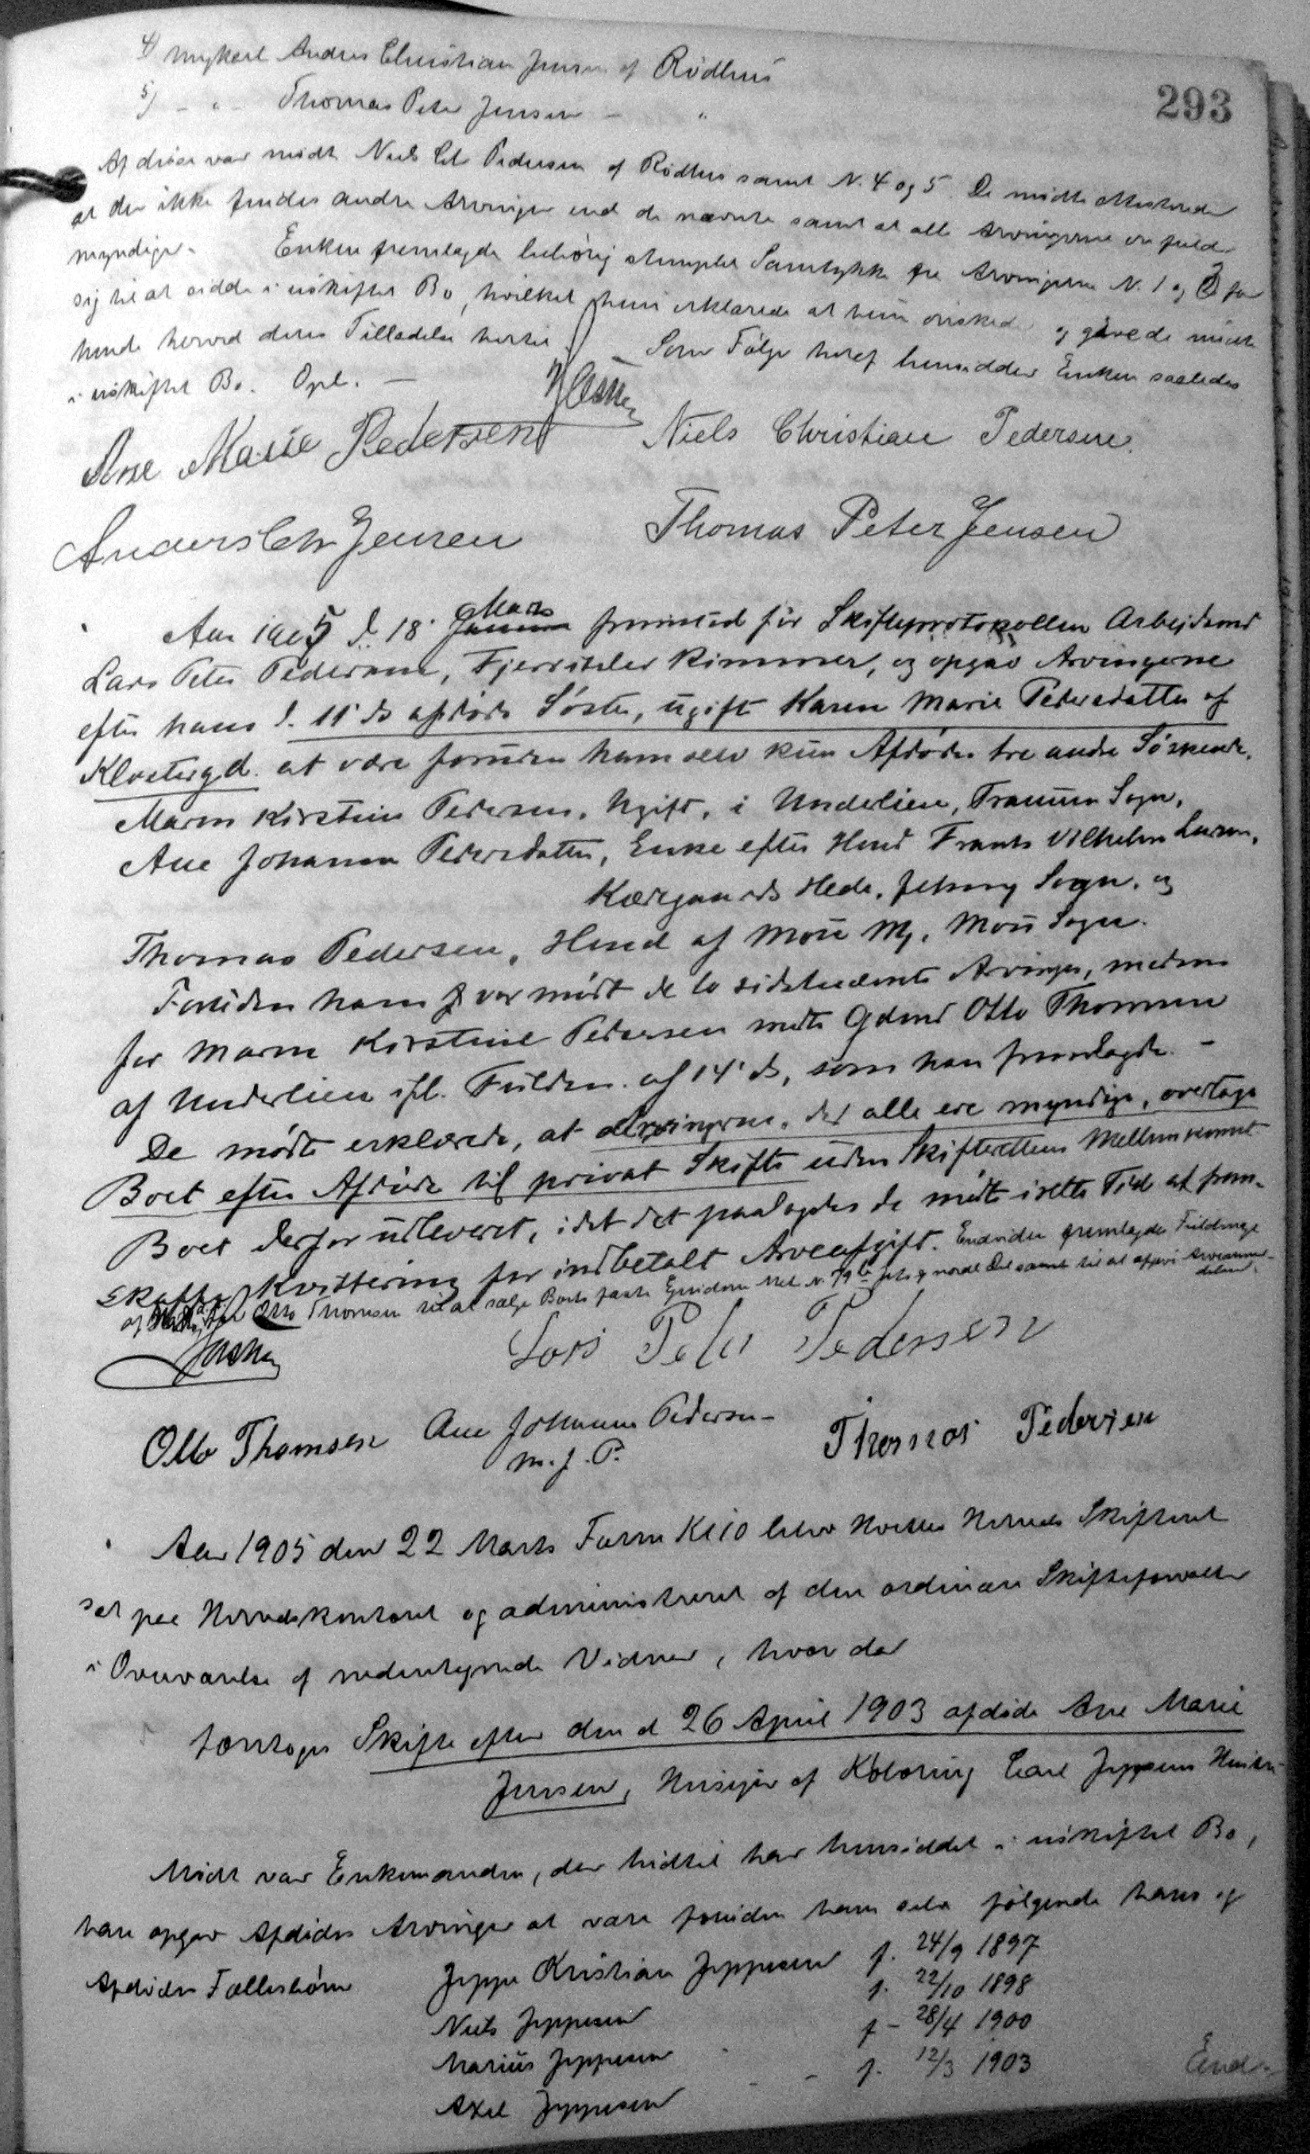 293
4) Andreas Christian Jensen af Rødhus
5) - " - Thomas Peter Jensen - "
Af disse var mødt Niels Chr Pedersen af Rødhus samt N. 4 og 5. De mødte attesterede
at der ikke findes andre Arvinger end de nævnte samt at alle Arvingerne er fuld-
myndige. Enken fremlagde behørig stemplet Samtykke fra Arvingerne N. 1 og 3 for
sig til at sidde i uskiftet Bo, hvilket hun erklærede at hun ønskede og gave de mødte
hende herved deres Tilladelse hertil. Som Følge heraf hensidder Enken saaledes
i uskiftet Bo. Opl. -
Ane Marie Pedersen Niels Christian Pedersen.
Anders Chr Jensen Thomas Peter Jensen
Aar 1905 d. 18' Marts fremstod for Skifteprotokollen Arbejdsmd
Lars Peter Pedersen, Fjerritslev Kimmer, og opgav Arvingerne
efter hans d. 11' ds afdøde Søster, ugift Karen Marie Pedersdatter af
Klostergd. at være foruden ham selv kun Afdødes tre andre Søskende.
Maren Kirstine Pedersen, Ugift, i Underlien, Tranum Sogn,
Ane Johanne Pedersdatter, Enke efter Hmd Frants Vilhelm Larsen,
Kærgaards Hede, Jetsmg Sogn, og
Thomas Pedersen, Hmd af Mou Mj, Mou Sogn.
Foruden ham var mødt de to sidstnævnte Arvinger, medens
for Maren Kirstine Pedersen mødte Gdmd Otto Thomsen
af Underlien ifl. Fuldm. af 14' ds, som han fremlagde. -
De mødte erklærede, at Arvingerne, der alle ere myndige, overtage
Boet efter Afdøde til privat Skifte uden Skifterettens Mellemkomst.
Boet derfor udleveret, idet det paalagdes de mødte i rette Tid at frem-
skaffe Kvittering for indbetalt Arveafgift. Endvidere fremlagdes Fuldmagt
Otto Thomsen til at sælge Boets faste Ejendom Mat. N. 79
Lars Peter Pedersen
Otto Thomsen Ane Johanne Pedersen Thomas Pedersen
m. f. P.
Aar 1905 den 22 Marts Form Kl 10 blev Herreds Skifteret
sat paa Herredskontoret og administreret af den ordinære Skifteforvalter
i Overværelse af undertegnede Vidner, hvor da
foretoges Skifte efter den d 26 April 1903 afdøde Ane Marie
Jensen, af Carl Jeppesen
Mødt var Enkemanden, der hidtil har hensiddet i uskiftet Bo,
han opgav Afdødes Arvinger at være foruden ham selv følgende hans og
Afdødes Fællesbørn Jeppe Kristian Jeppesen f. 24/9 1897
Niels Jeppesen f. 22/10 1898
Marius Jeppesen f - 28/4 1900
Axel Jeppesen - - f. 12/3 1903
End-